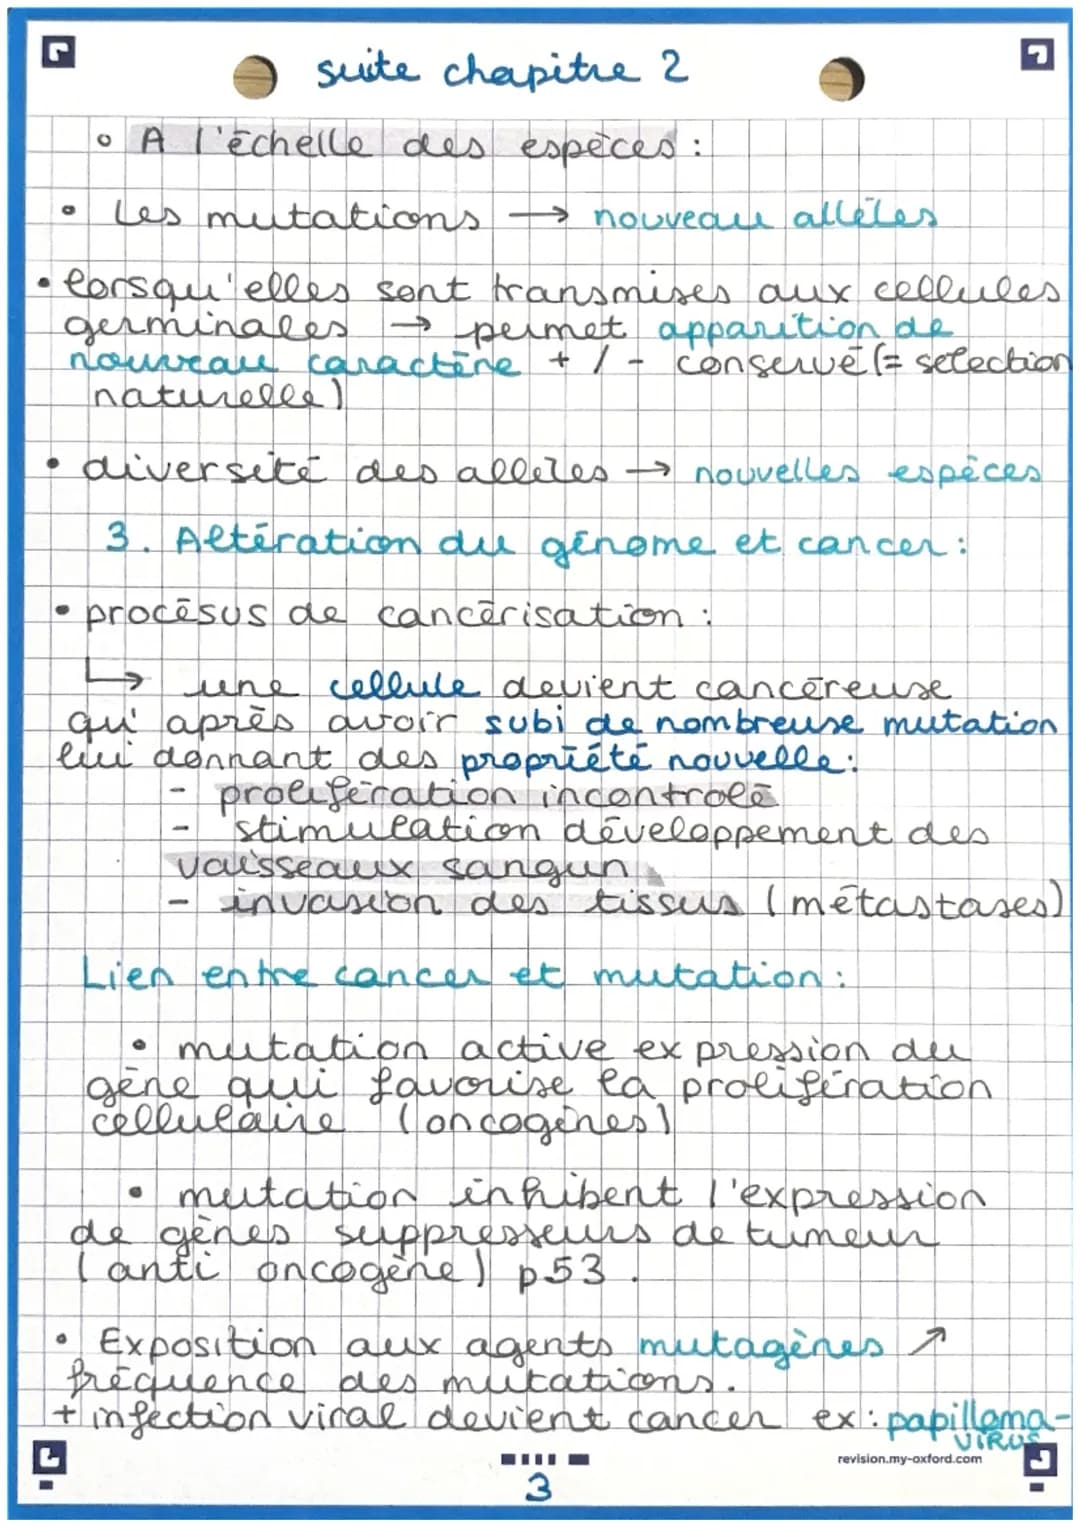 suite chapitre 2
◦ A l'échelle des espèces :
• Les mutations → nouveau allèles
• lorsqu'elles sont transmises aux cellules
germinales → permet apparition de
nouveau caractère + / - conservé (= selection
naturelle)
• diversité des allèles → nouvelles espèces
3. Altération du génome et cancer :
• procésus de cancérisation :
↳ une cellule devient cancéreuse
qu'après avoir subi de nombreuse mutation
lui donnant des propriété nouvelle :
- prolifération incontrolé
- stimulation développement des
vaisseaux sangun
- invasion des tissus (métastases)
Lien entre cancer et mutation :
• mutation active expression du
gène qui favorise la prolifération
cellulaire (oncogènes)
• mutation inhibent l'expression
de gènes suppresseurs de tumeur
(anti oncogène) p53.
• Exposition aux agents mutagènes ↗
fréquence des mutations.
+ infection viral devient cancer ex : papilloma-
VIRUS
revision.my-oxford.com
3